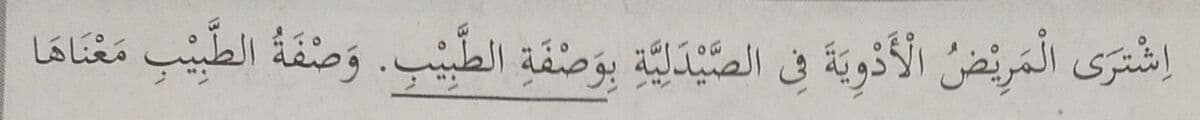 اِشْتَرَى الْمَرِيْضُ الْأَدْوِيَةَ فِى الصَّيْدَلِيَّةِ بِوَصْفَةِ الطَّبِيْبِ. وَصْفَةُ الطَّبِيْبِ مَعْنَاهَا